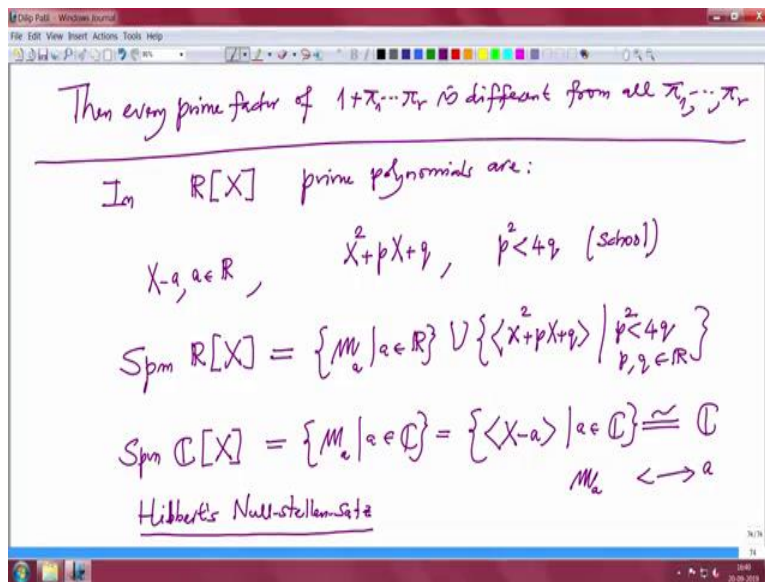 Dilip Patil - Windows Journal
File Edit View Insert Actions Tools Help
Then every prime factor of 1+π₁⋯πᵣ is different from all π₁,⋯,πᵣ
In ℝ[X] prime polynomials are:
X-a, a∈ℝ, X²+pX+q, p²<4q (School)
Spm ℝ[X] = {𝔪ₐ | a∈ℝ} ∪ {⟨X²+pX+q⟩ | p²<4q
p,q∈ℝ}
Spm ℂ[X] = {𝔪ₐ | a∈ℂ} = {⟨X-a⟩ | a∈ℂ} ≅ ℂ
𝔪ₐ ⟷ a
Hilbert's Null-stellen-Satz
74/74
74
16:40
20-09-2019